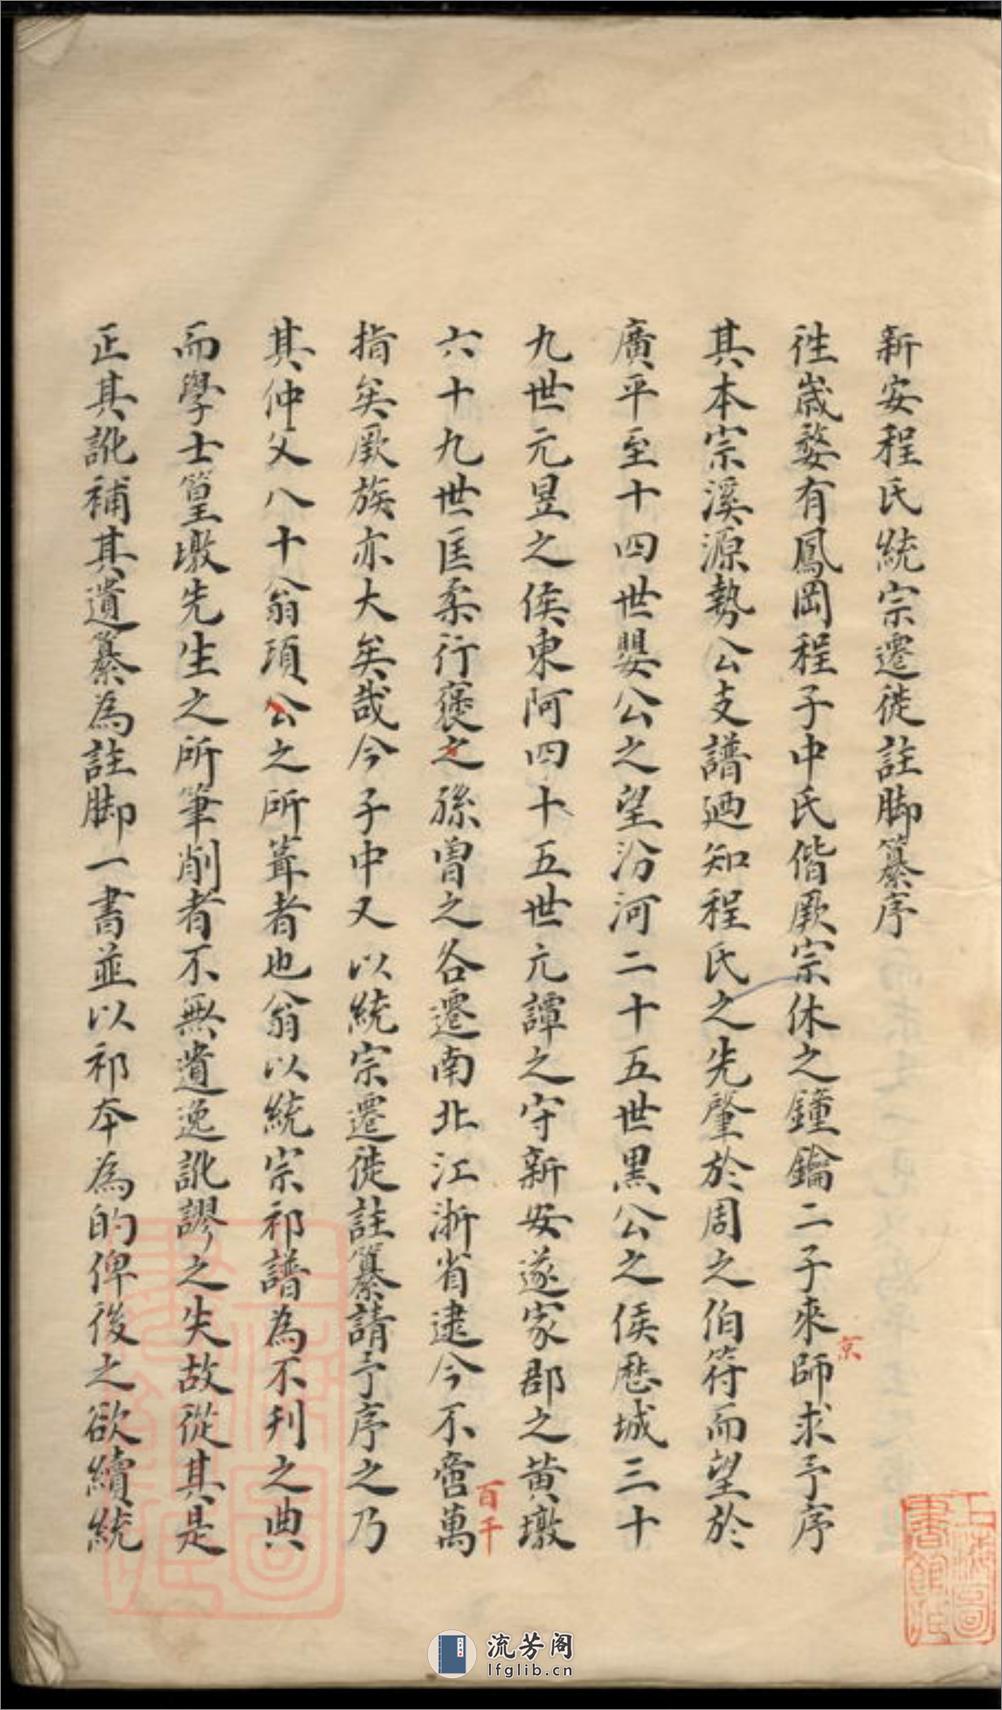 新安程氏統宗遷徙註脚纂序
徃歳婺有鳳岡程子中氏偕厥宗休之鐘鑰二子來師求予序
京
其本宗溪源勢公支譜廼知程氏之先肇於周之伯符而望於
廣平至十四世嬰公之望汾河二十五世黒公之侯歷城三十
九世元昱之侯東阿四十五世元譚之守新安遂家郡之黄墩
六十九世匡柔行褒之孫曽之各遷南北江浙省逮今不啻萬
百千
指矣厥族亦大矣哉今子中又以統宗遷徙註纂請予序之乃
其仲父八十翁項公之所葺者也翁以統宗祁譜為不刋之典
而學士篁墩先生之所筆削者不無遺逸訛謬之失故從其是
正其訛補其遺纂為註脚一書並以祁本為的俾後之欲續統
上海圖書館藏
流芳阁
lfglib.cn